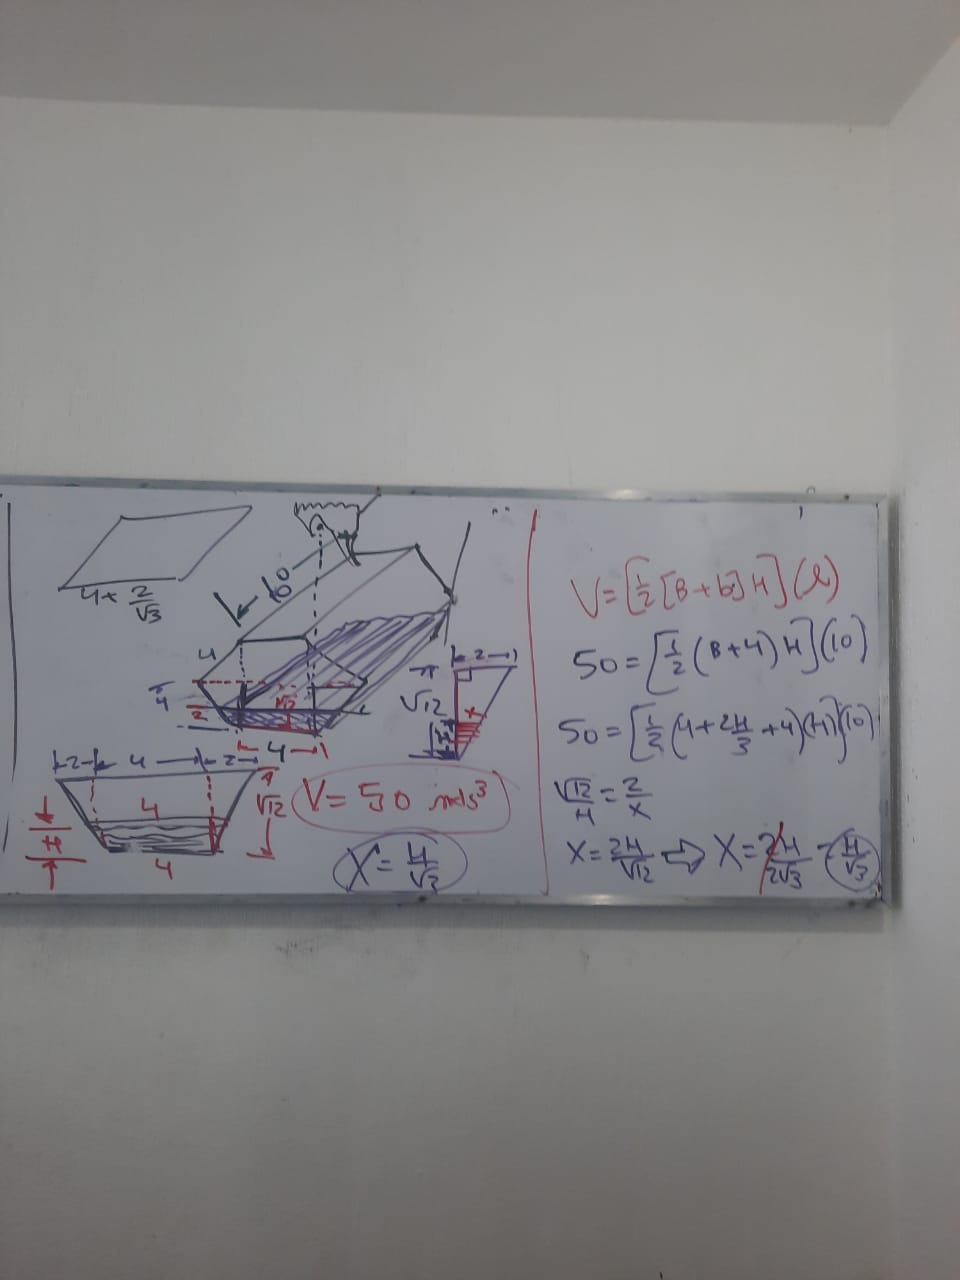 4+ 2/√3
10
4
4
2
√12
4
2
√12
x
H
2 4 2
4
√12
H
4
V= 50 mts³
X= H/√3
V=[1/2 [B+b]H](l)
50=[1/2 (B+4)H](10)
50=[1/2 (4+2H/3+4)(H)](10)
√12/H = 2/X
X= 2H/√12 ⇨ X= 2H/2√3 = H/√3